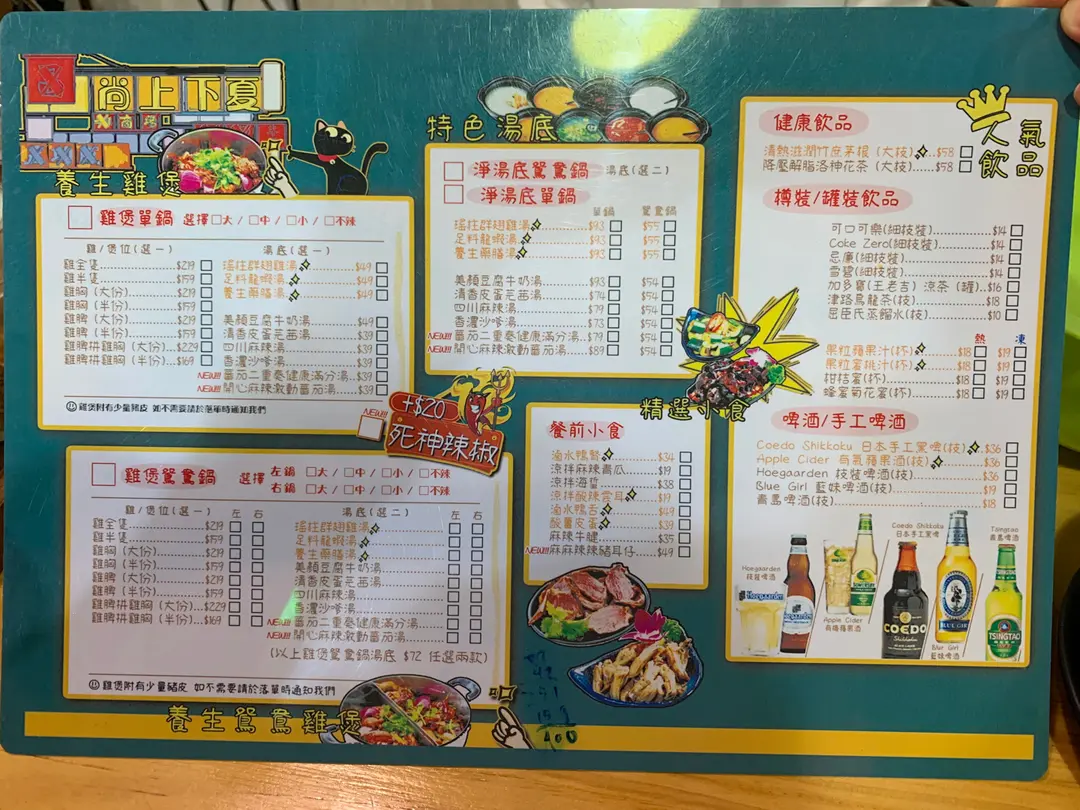 尚上下夏
養生雞煲
雞煲單鍋 選擇□大 / □中 / □小 / □不辣
雞/煲位(選一) 湯底(選一)
雞全隻 $219 □
雞半隻 $159 □
雞胸 (大份) $219 □
雞胸 (半份) $159 □
雞脾 (大份) $219 □
雞脾 (半份) $159 □
雞脾拼雞胸 (大份) $229 □
雞脾拼雞胸 (半份) $169 □
瑤柱群翅雞湯 $49 □
足料龍蝦湯 $49 □
養生藥膳湯 $49 □
美顏豆腐牛奶湯 $49 □
清香皮蛋芫茜湯 $39 □
四川麻辣湯 $39 □
香濃沙嗲湯 $39 □
NEW!!! 番茄二重奏健康滿分湯 $39 □
NEW!!! 開心麻辣激動番茄湯 $39 □
雞煲附有少量豬皮 如不需要請於落單時通知我們
NEW!!! +$20
死神辣椒
雞煲鴛鴦鍋 選擇 左鍋 □大 / □中 / □小 / □不辣
右鍋 □大 / □中 / □小 / □不辣
雞/煲位(選一) 左 右 湯底(選二) 左 右
雞全隻 $219 □ □
雞半隻 $159 □ □
雞胸 (大份) $219 □ □
雞胸 (半份) $159 □ □
雞脾 (大份) $219 □ □
雞脾 (半份) $159 □ □
雞脾拼雞胸 (大份) $229 □ □
雞脾拼雞胸 (半份) $169 □ □
瑤柱群翅雞湯 □ □
足料龍蝦湯 □ □
養生藥膳湯 □ □
美顏豆腐牛奶湯 □ □
清香皮蛋芫茜湯 □ □
四川麻辣湯 □ □
香濃沙嗲湯 □ □
NEW!!! 番茄二重奏健康滿分湯 □ □
NEW!!! 開心麻辣激動番茄湯 □ □
(以上雞煲鴛鴦鍋湯底 $72 任選兩款)
雞煲附有少量豬皮 如不需要請於落單時通知我們
養生鴛鴦雞煲
特色湯底
淨湯底鴛鴦鍋 湯底(選二)
淨湯底單鍋
單鍋 鴛鴦鍋
瑤柱群翅雞湯 $93 □ $55 □
足料龍蝦湯 $93 □ $55 □
養生藥膳湯 $93 □ $55 □
美顏豆腐牛奶湯 $93 □ $54 □
清香皮蛋芫茜湯 $74 □ $54 □
四川麻辣湯 $79 □ $54 □
香濃沙嗲湯 $73 □ $54 □
NEW!!! 番茄二重奏健康滿分湯 $79 □ $54 □
NEW!!! 開心麻辣激動番茄湯 $89 □ $54 □
精選小食
餐前小食
滷水鴨腎 $34 □
涼拌麻辣青瓜 $19 □
涼拌海蜇 $38 □
涼拌酸辣雲耳 $19 □
滷水鴨舌 $49 □
酸薑皮蛋 $39 □
麻辣牛腱 $35 □
NEW!!! 麻麻辣辣豬耳仔 $49 □
人氣飲品
健康飲品
清熱滋潤竹庶茅根 (大枝) $58 □
降壓解脂洛神花茶 (大枝) $58 □
樽裝/罐裝飲品
可口可樂(細枝裝) $14 □
Coke Zero(細枝裝) $14 □
忌廉(細枝裝) $14 □
雪碧(細枝裝) $14 □
加多寶(王老吉) 涼茶 (罐) $16 □
津路烏龍茶(枝) $18 □
屈臣氏蒸餾水(枝) $10 □
熱 凍
果粒蘋果汁(杯) $18 □ $19 □
果粒蜜桃汁(杯) $18 □ $19 □
柑桔蜜(杯) $18 □ $19 □
蜂蜜菊花蜜(杯) $18 □ $19 □
啤酒/手工啤酒
Coedo Shikkoku 日本手工黑啤(枝) $36 □
Apple Cider 有氣蘋果酒(枝) $36 □
Hoegaarden 枝裝啤酒(枝) $36 □
Blue Girl 藍妹啤酒(枝) $19 □
青島啤酒(枝) $18 □
Hoegaarden
枝裝啤酒
Apple Cider
有氣蘋果酒
Coedo Shikkoku
日本手工黑啤
Blue Girl
藍妹啤酒
Tsingtao
青島啤酒
Hoegaarden
COEDO
Shikkoku
BLUE GIRL
TSINGTAO